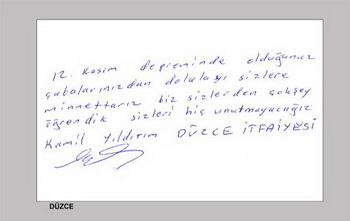 12. Kasım depreminde olduğunuz
çabalarınızdan dolalayı sizlere
minnettarız biz sizlerden çokşey
öğrendik sizleri hiç unutmayacağız
Kamil Yıldırım DÜZCE İTFAİYESİ
DÜZCE